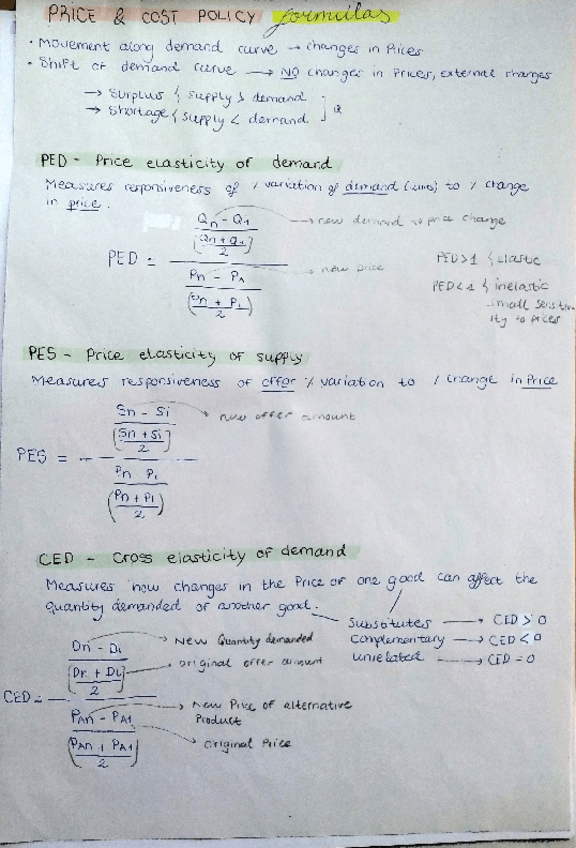 PRICE & COST POLICY formulas
• Movement along demand curve → changes in Prices
• Shift of demand curve → NO changes in Prices, external changes
→ Surplus { supply > demand
→ Shortage { supply < demand } Q
PED - Price elasticity of demand
Measures responsiveness of % variation of demand to % change
in price.
PED =
Qn - Q1
(Qn + Q1)
2
Pn - P1
(Pn + P1)
2
→ new demand to price change
→ new price
PED>1 { elastic
PED<1 { inelastic
small sensitiv
ity to prices
PES - Price elasticity of supply
Measures responsiveness of offer % variation to % change in Price
PES = -
Sn - Si
(Sn + Si)
2
Pn - Pi
(Pn + Pi)
2
→ new offer amount
CED - Cross elasticity of demand
Measures how changes in the Price of one good can affect the
quantity demanded of another good.
Substitutes → CED > 0
Complementary → CED < 0
Unrelated → CED = 0
CED =
Dn - Di
(Dn + Di)
2
PAn - PA1
(PAn + PA1)
2
→ New Quantity demanded
→ original offer amount
→ New Price of alternative
Product
→ original Price